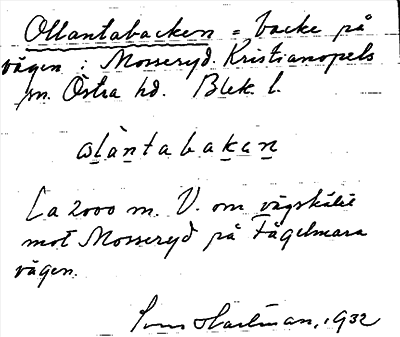 Ollantabacken = backe på
vägen i Mosseryd. Kristianopels
sn. Östra hd. Blek. l.
ωlàntabakan
Ca 2000 m. V. om vägskälet
mot Mosseryd på Fågelmara
vägen.
Sven Hartman, 1932